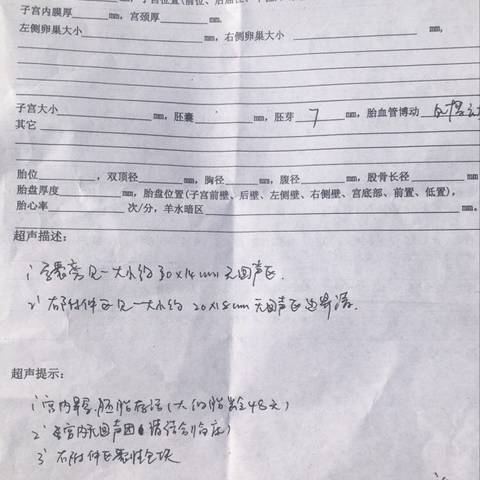 子宫内膜厚 mm,宫颈厚 mm.
左侧卵巢大小 mm,右侧卵巢大小 mm,
子宫大小 mm,胚囊 mm,胚芽 7 mm,胎血管博动
其它
胎位 ,双顶径 mm,胸径 mm,腹径 mm,股骨长径 mm
胎盘厚度 mm,胎盘位置(子宫前壁、后壁、左侧壁、右侧壁、宫底部、前置、低置),
胎心率 次/分,羊水暗区 mm。
超声描述:
1、孕囊旁见一大小约30×14mm无回声区.
2、右附件区见一大小约20×18mm无回声区边界清.
超声提示:
1、宫内早孕.胚胎存活(大约胎龄48天)
2、宫内无回声团(请结合临床)
3、右附件区囊性包块